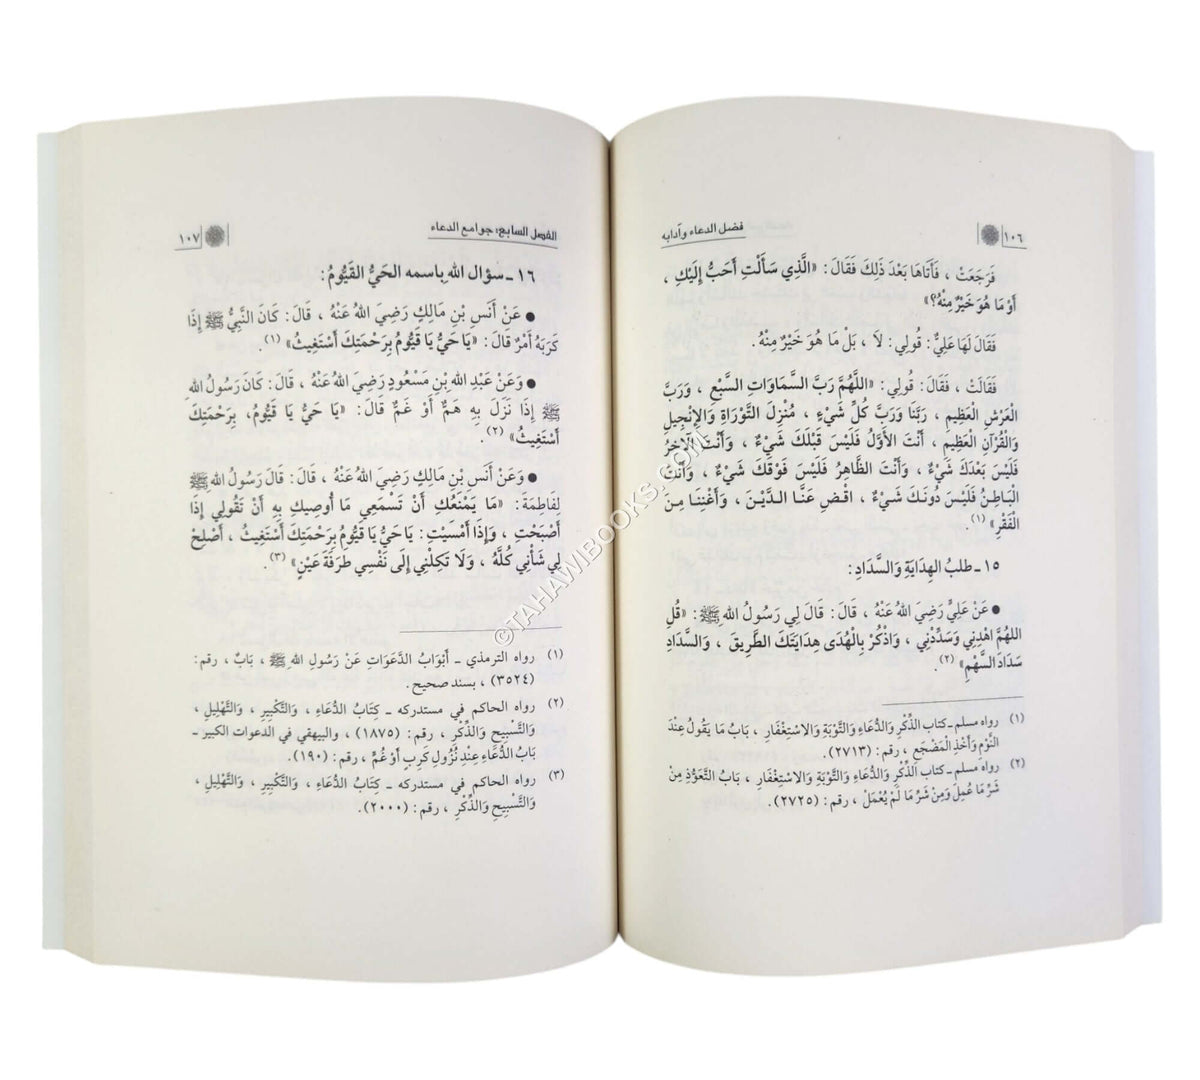 ١٠٦
فضل الدعاء وآدابه
فَرَجَعَتْ ، فَأَتَاهَا بَعْدَ ذَلِكَ فَقَالَ: «الَّذِي سَأَلْتِ أَحَبُّ إِلَيْكِ ،
أَوْ مَا هُوَ خَيْرٌ مِنْهُ؟»
فَقَالَ لَهَا عَلِيٌّ: قُولِي: لَا ، بَلْ مَا هُوَ خَيْرٌ مِنْهُ.
فَقَالَتْ ، فَقَالَ: قُولِي: «اللَّهُمَّ رَبَّ السَّمَاوَاتِ السَّبْعِ ، وَرَبَّ
الْعَرْشِ الْعَظِيمِ ، رَبَّنَا وَرَبَّ كُلِّ شَيْءٍ ، مُنْزِلَ التَّوْرَاةِ وَالْإِنْجِيلِ
وَالْقُرْآنِ الْعَظِيمِ ، أَنْتَ الأَوَّلُ فَلَيْسَ قَبْلَكَ شَيْءٌ ، وَأَنْتَ الْآخِرُ
فَلَيْسَ بَعْدَكَ شَيْءٌ ، وَأَنْتَ الظَّاهِرُ فَلَيْسَ فَوْقَكَ شَيْءٌ ، وَأَنْتَ
الْبَاطِنُ فَلَيْسَ دُونَكَ شَيْءٌ ، اقْضِ عَنَّا الدَّيْنَ ، وَأَغْنِنَا مِنَ
الْفَقْرِ» (١).
١٥ ـ طلبُ الهِدَايَةِ والسَّدَادِ:
● عَنْ عَلِيٍّ رَضِيَ اللهُ عَنْهُ ، قَالَ: قَالَ لِي رَسُولُ اللهِ ﷺ: «قُلِ
اللهُمَّ اهْدِنِي وَسَدِّدْنِي ، وَاذْكُرْ بِالْهُدَى هِدَايَتَكَ الطَّرِيقَ ، وَالسَّدَادِ
سَدَادَ السَّهْمِ» (٢).
(١) رواه مسلم ـ كتاب الذِّكْرِ وَالدُّعَاءِ وَالتَّوْبَةِ وَالاسْتِغْفَارِ ، بَابُ مَا يَقُولُ عِنْدَ
النَّوْمِ وَأَخْذِ الْمَضْجَعِ ، رقم: (٢٧١٣).
(٢) رواه مسلم ـ كتاب الذِّكْرِ وَالدُّعَاءِ وَالتَّوْبَةِ وَالاسْتِغْفَارِ ، بَابُ التَّعَوُّذِ مِنْ
شَرِّ مَا عُمِلَ وَمِنْ شَرِّ مَا لَمْ يُعْمَلْ ، رقم: (٢٧٢٥).
الفصل السابع: جوامع الدعاء
١٠٧
١٦ ـ سؤال الله بِاسمه الحَيُّ القَيُّومُ:
● عَنْ أَنَسِ بْنِ مَالِكٍ رَضِيَ اللهُ عَنْهُ ، قَالَ: كَانَ النَّبِيُّ ﷺ إِذَا
كَرَبَهُ أَمْرٌ قَالَ: «يَا حَيُّ يَا قَيُّومُ بِرَحْمَتِكَ أَسْتَغِيثُ» (١).
● وَعَنْ عَبْدِ اللهِ بْنِ مَسْعُودٍ رَضِيَ اللهُ عَنْهُ ، قَالَ: كَانَ رَسُولُ اللهِ
ﷺ إِذَا نَزَلَ بِهِ هَمٌّ أَوْ غَمٌّ قَالَ: «يَا حَيُّ يَا قَيُّومُ، بِرَحْمَتِكَ
أَسْتَغِيثُ» (٢).
● وَعَنْ أَنَسِ بْنِ مَالِكٍ رَضِيَ اللهُ عَنْهُ ، قَالَ: قَالَ رَسُولُ اللهِ ﷺ
لِفَاطِمَةَ: «مَا يَمْنَعُكِ أَنْ تَسْمَعِي مَا أُوصِيكِ بِهِ أَنْ تَقُولِي إِذَا
أَصْبَحْتِ ، وَإِذَا أَمْسَيْتِ: يَا حَيُّ يَا قَيُّومُ بِرَحْمَتِكَ أَسْتَغِيثُ ، أَصْلِحْ
لِي شَأْنِي كُلَّهُ ، وَلَا تَكِلْنِي إِلَى نَفْسِي طَرْفَةَ عَيْنٍ» (٣).
(١) رواه الترمذي ـ أَبْوَابُ الدَّعَوَاتِ عَنْ رَسُولِ اللهِ ﷺ ، بَابٌ ، رقم:
(٣٥٢٤) ، بسند صحيح.
(٢) رواه الحاكم في مستدركه ـ كِتَابُ الدُّعَاءِ ، وَالتَّكْبِيرِ ، وَالتَّهْلِيلِ ،
وَالتَّسْبِيحِ وَالذِّكْرِ ، رقم: (١٨٧٥) ، والبيهقي في الدعوات الكبير ـ
بَابُ الدُّعَاءِ عِنْدَ نُزُولِ كَرْبٍ أَوْ غُمٍّ ، رقم: (١٩٠).
(٣) رواه الحاكم في مستدركه ـ كِتَابُ الدُّعَاءِ ، وَالتَّكْبِيرِ ، وَالتَّهْلِيلِ ،
وَالتَّسْبِيحِ وَالذِّكْرِ ، رقم: (٢٠٠٠).
©TAHAWIBOOKS.COM